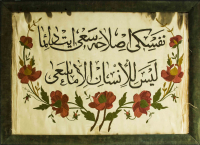 نفسك اصلاحه سعى ايت دائما
ليس للانسان الا ما سعى